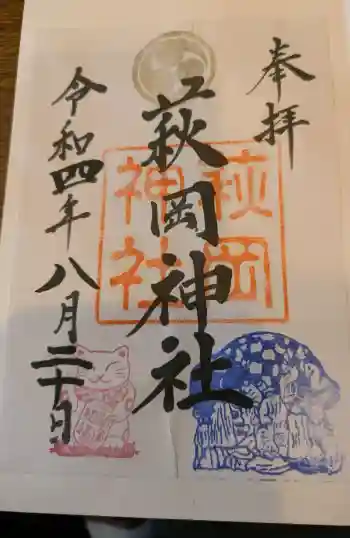 奉拝
萩岡神社
萩岡
神社
令和四年八月二十日